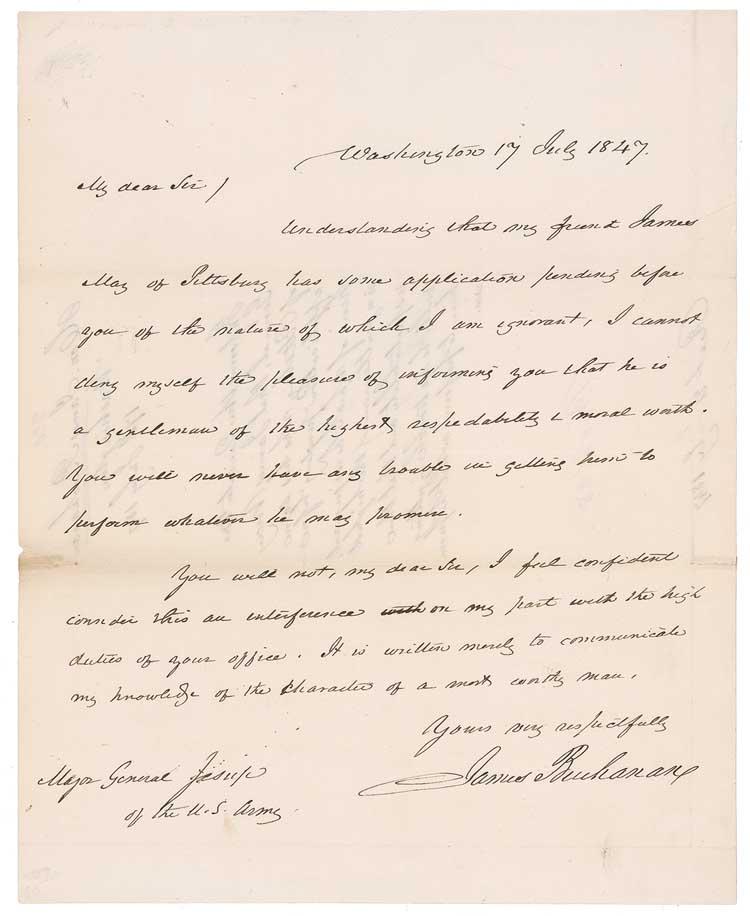 Washington 17 July 1847.
My dear Sir /
Understanding that my friend James
May of Pittsburg has some application pending before
you of the nature of which I am ignorant, I cannot
deny myself the pleasure of informing you that he is
a gentleman of the highest respectability & moral worth.
You will never have any trouble in getting him to
perform whatever he may promise.
You will not, my dear Sir, I feel confident
consider this an interference with on my part with the high
duties of your office. It is written merely to communicate
my knowledge of the character of a most worthy man.
Yours very respectfully
James Buchanan
Major General Jesup
of the U.S. Army.